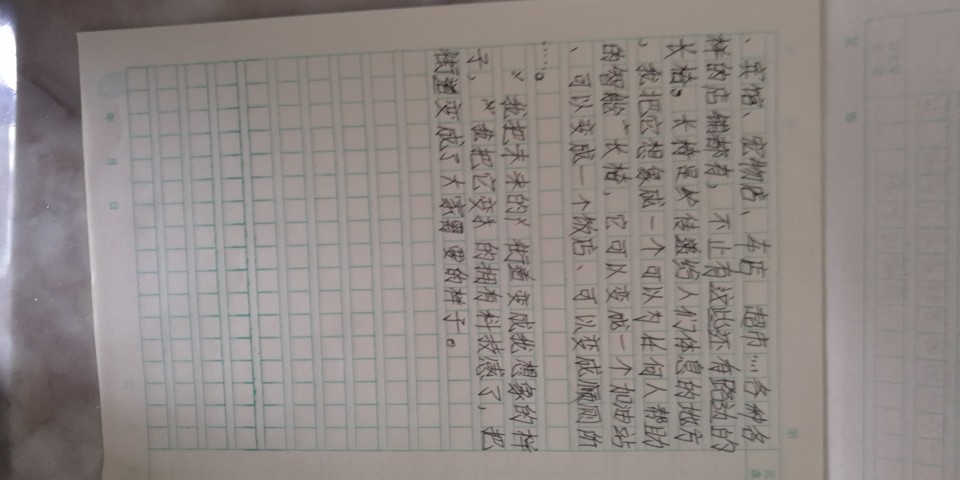 、宾馆、宠物店、车店 超市…各种各
样的店铺都有，不止有这些还有路边的
长椅。长椅是
，我把它想象成一个可以为任何人帮助
的智能“长椅，它可以变成一个加油站
、可以变成一个饭店、可以变成厕所
……。
“我把未来的”街道变成我想象的样
子，“我把它变 的拥有科技感了，把
街道变成了大家 要的样子。
年 月 日